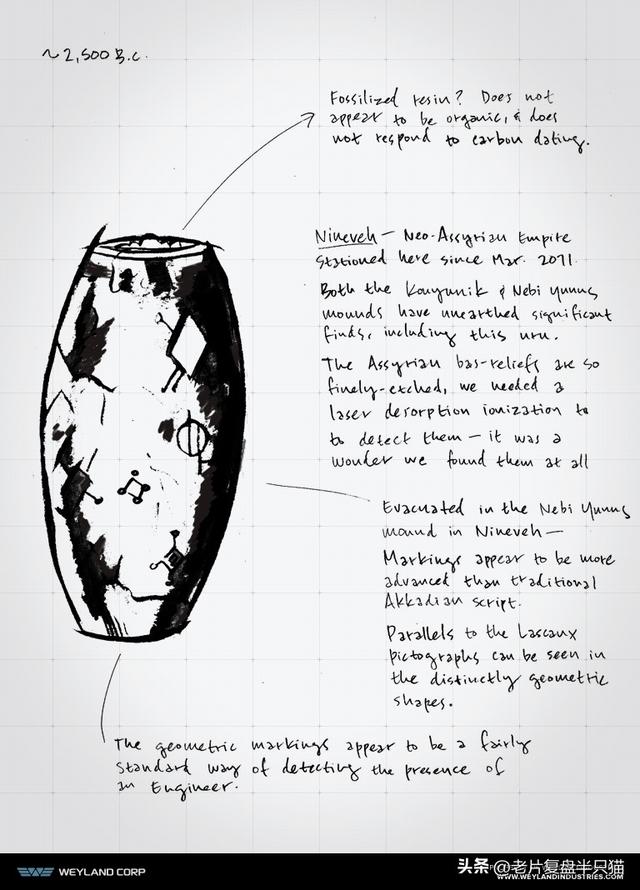 ~2,500 B.C.
Fossilized resin? Does not
appear to be organic, & does
not respond to carbon dating.
Nineveh — Neo-Assyrian Empire
Stationed here since Mar. 2071.
Both the Kouyunik & Nebi Yunus
mounds have unearthed significant
finds, including this urn.
The Assyrian bas-reliefs are so
finely-etched, we needed a
laser desorption ionization to
to detect them — it was a
wonder we found them at all
Evacuated in the Nebi Yunus
mound in Nineveh —
Markings appear to be more
advanced than traditional
Akkadian script.
Parallels to the Lascaux
pictographs can be seen in
the distinctly geometric
shapes.
The geometric markings appear to be a fairly
standard way of detecting the presence of
an Engineer.
WEYLAND CORP
头条 @老片复盘半只猫
WWW.WEYLANDINDUSTRIES.COM